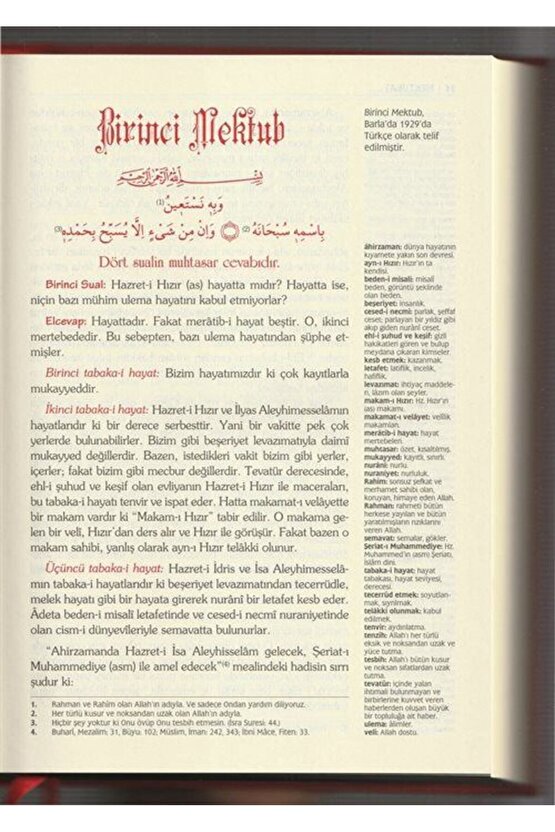 Birinci Mektub
بِسْمِ اللهِ الرَّحْمٰنِ الرَّحِيمِ
وَبِهِ نَسْتَعِينُ (1)
بِاسْمِهِ سُبْحَانَهُ (2) وَإِنْ مِنْ شَيْءٍ إِلَّا يُسَبِّحُ بِحَمْدِهِ (3)
Dört sualin muhtasar cevabıdır.
Birinci Sual: Hazret-i Hızır (as) hayatta mıdır? Hayatta ise,
niçin bazı mühim ulema hayatını kabul etmiyorlar?
Elcevap: Hayattadır. Fakat merâtib-i hayat beştir. O, ikinci
mertebededir. Bu sebepten, bazı ulema hayatından şüphe et-
mişler.
Birinci tabaka-i hayat: Bizim hayatımızdır ki çok kayıtlarla
mukayyeddir.
İkinci tabaka-i hayat: Hazret-i Hızır ve İlyas Aleyhimesselâmın
hayatlarıdır ki bir derece serbesttir. Yani bir vakitte pek çok
yerlerde bulunabilirler. Bizim gibi beşeriyet levazımatıyla daimî
mukayyed değillerdir. Bazen, istedikleri vakit bizim gibi yerler,
içerler; fakat bizim gibi mecbur değillerdir. Tevatür derecesinde,
ehl-i şuhud ve keşif olan evliyanın Hazret-i Hızır ile maceraları,
bu tabaka-i hayatı tenvir ve ispat eder. Hatta makamat-ı velâyette
bir makam vardır ki "Makam-ı Hızır" tabir edilir. O makama ge-
len bir velî, Hızır'dan ders alır ve Hızır ile görüşür. Fakat bazen o
makam sahibi, yanlış olarak ayn-ı Hızır telâkki olunur.
Üçüncü tabaka-i hayat: Hazret-i İdris ve İsa Aleyhimesselâ-
mın tabaka-i hayatlarıdır ki beşeriyet levazımatından tecerrüdle,
melek hayatı gibi bir hayata girerek nuranî bir letafet kesb eder.
Âdeta beden-i misalî letafetinde ve cesed-i necmî nuraniyetinde
olan cism-i dünyevîleriyle semavatta bulunurlar.
"Ahirzamanda Hazret-i İsa Aleyhisselâm gelecek, Şeriat-ı
Muhammediye (asm) ile amel edecek"(4) mealindeki hadisin sırrı
şudur ki:
1. Rahman ve Rahîm olan Allah'ın adıyla. Ve sadece Ondan yardım diliyoruz.
2. Her türlü kusur ve noksandan uzak olan Allah'ın adıyla.
3. Hiçbir şey yoktur ki Onu övüp Onu tesbih etmesin. (İsra Suresi: 44.)
4. Buharî, Mezalim: 31, Büyu: 102; Müslim, İman: 242, 343; İbni Mâce, Fiten: 33.
Birinci Mektub,
Barla'da 1929'da
Türkçe olarak telif
edilmiştir.
âhirzaman: dünya hayatının
kıyamete yakın son devresi.
ayn-ı Hızır: Hızır'ın ta
kendisi.
beden-i misalî: misalî
beden, görüntü şeklinde
olan beden.
beşeriyet: insanlık.
cesed-i necmî: parlak, şeffaf
ceset; parlayan bir yıldız gibi
akıp giden nuranî ceset.
ehl-i şuhud ve keşif: gizli
hakikatleri gören ve bulup
meydana çıkaran kimseler.
kesb etmek: kazanmak.
letafet: latiflik, incelik,
hafiflik.
levazımat: ihtiyaç maddele-
ri, lâzım olan şeyler.
makam-ı Hızır: Hz. Hızır'ın
(as) makamı.
makamat-ı velâyet: velîlik
makamları.
merâtib-i hayat: hayat
mertebeleri.
muhtasar: özet, kısaltılmış.
mukayyed: kayıtlı, sınırlı.
nurânî: nurlu.
nuraniyet: nurluluk.
Rahîm: sonsuz şefkat ve
merhamet sahibi olan,
koruyan, himaye eden Allah.
Rahman: rahmeti bütün
herkese yayılan ve bütün
yaratılmışların rızıklarını
veren Allah.
semavat: semalar, gökler.
Şeriat-ı Muhammediye: Hz.
Muhammed'in (asm) Şeriatı,
İslâm dini.
tabaka-i hayat: hayat
tabakası, hayat seviyesi,
derecesi.
tecerrüd etmek: soyutlan-
mak, sıyrılmak.
telâkki olunmak: kabul
edilmek.
tenvir: aydınlatma.
tenzih: Allah'ı her türlü
eksik ve noksandan uzak ve
yüce tutma.
tesbih: Allah'ı bütün kusur
ve noksan sıfatlardan uzak
tutma.
tevatür: içinde yalan
ihtimali bulunmayan ve
birbirlerine kuvvet veren
haberlerden oluşan büyük
bir topluluğa ait haber.
ulema: âlimler.
velî: Allah dostu.